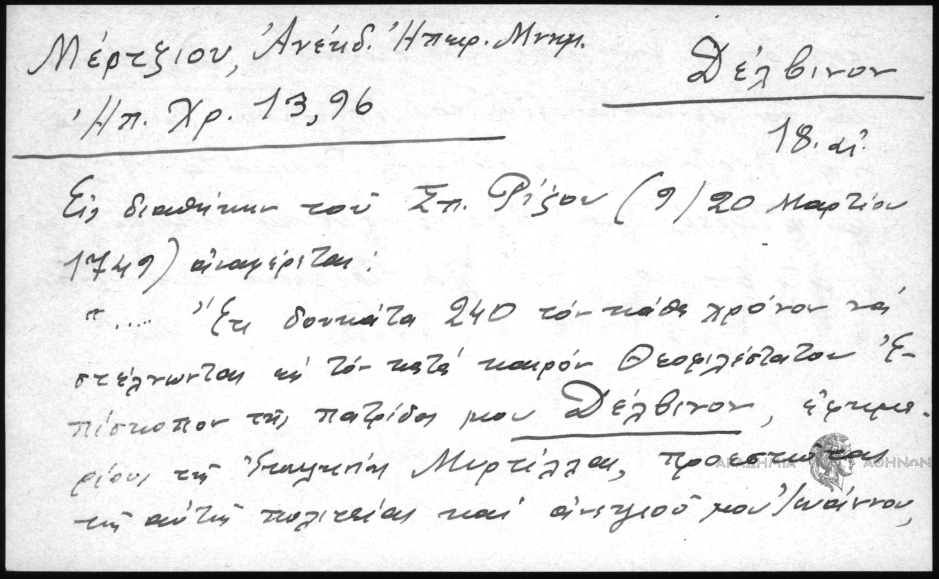 Μέρτζιου, Ἀνέκδ. Ἠπειρ. Μνημ.
Ἠπ. Χρ. 13, 96
Δέλβινον
18. αἰ.
Εἰς διαθήκην τοῦ Σπ. Ρίζου (9/20 Μαρτίου
1749) ἀναφέρεται:
"..... Ἔτι δουκάτα 240 τόν κάθε χρόνον νά
στέλνωνται εἰς τόν κατά καιρόν Θεοφιλέστατον Ἐ-
πίσκοπον τῆς πατρίδος μου Δέλβινον, ἐφημε-
ρίους τῆς Μυρτίλλας, προεστῶτας
τῆς αὐτῆς πολιτείας καί ἀνεψιοῦ μου Ἰωάννου,
ΑΚΑΔΗΜΙΑ ΑΘΗΝΩΝ